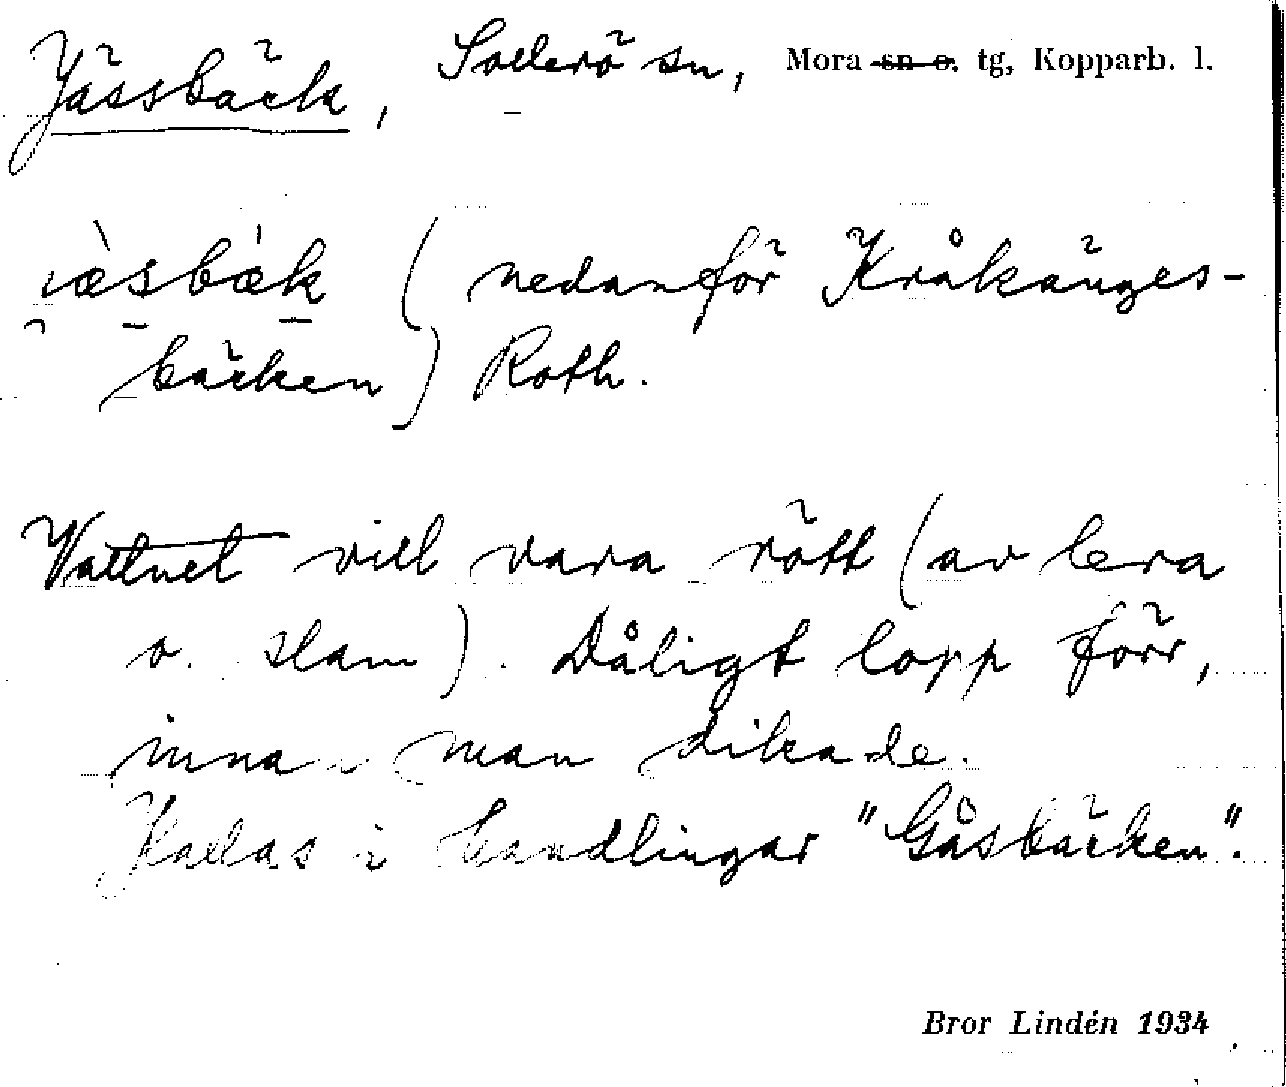 Jässbäck, Sollerö sn, Mora sn o. tg, Kopparb. l.
i̯æ̀sbæ̀k (nedanför Kråkänges-
bäcken) Roth.
Vattnet vill vara rött (av lera
o. slam). Dåligt lopp förr,
innan man dikade.
Kallas i handlingar "Gåsbäcken".
Bror Lindén 1934